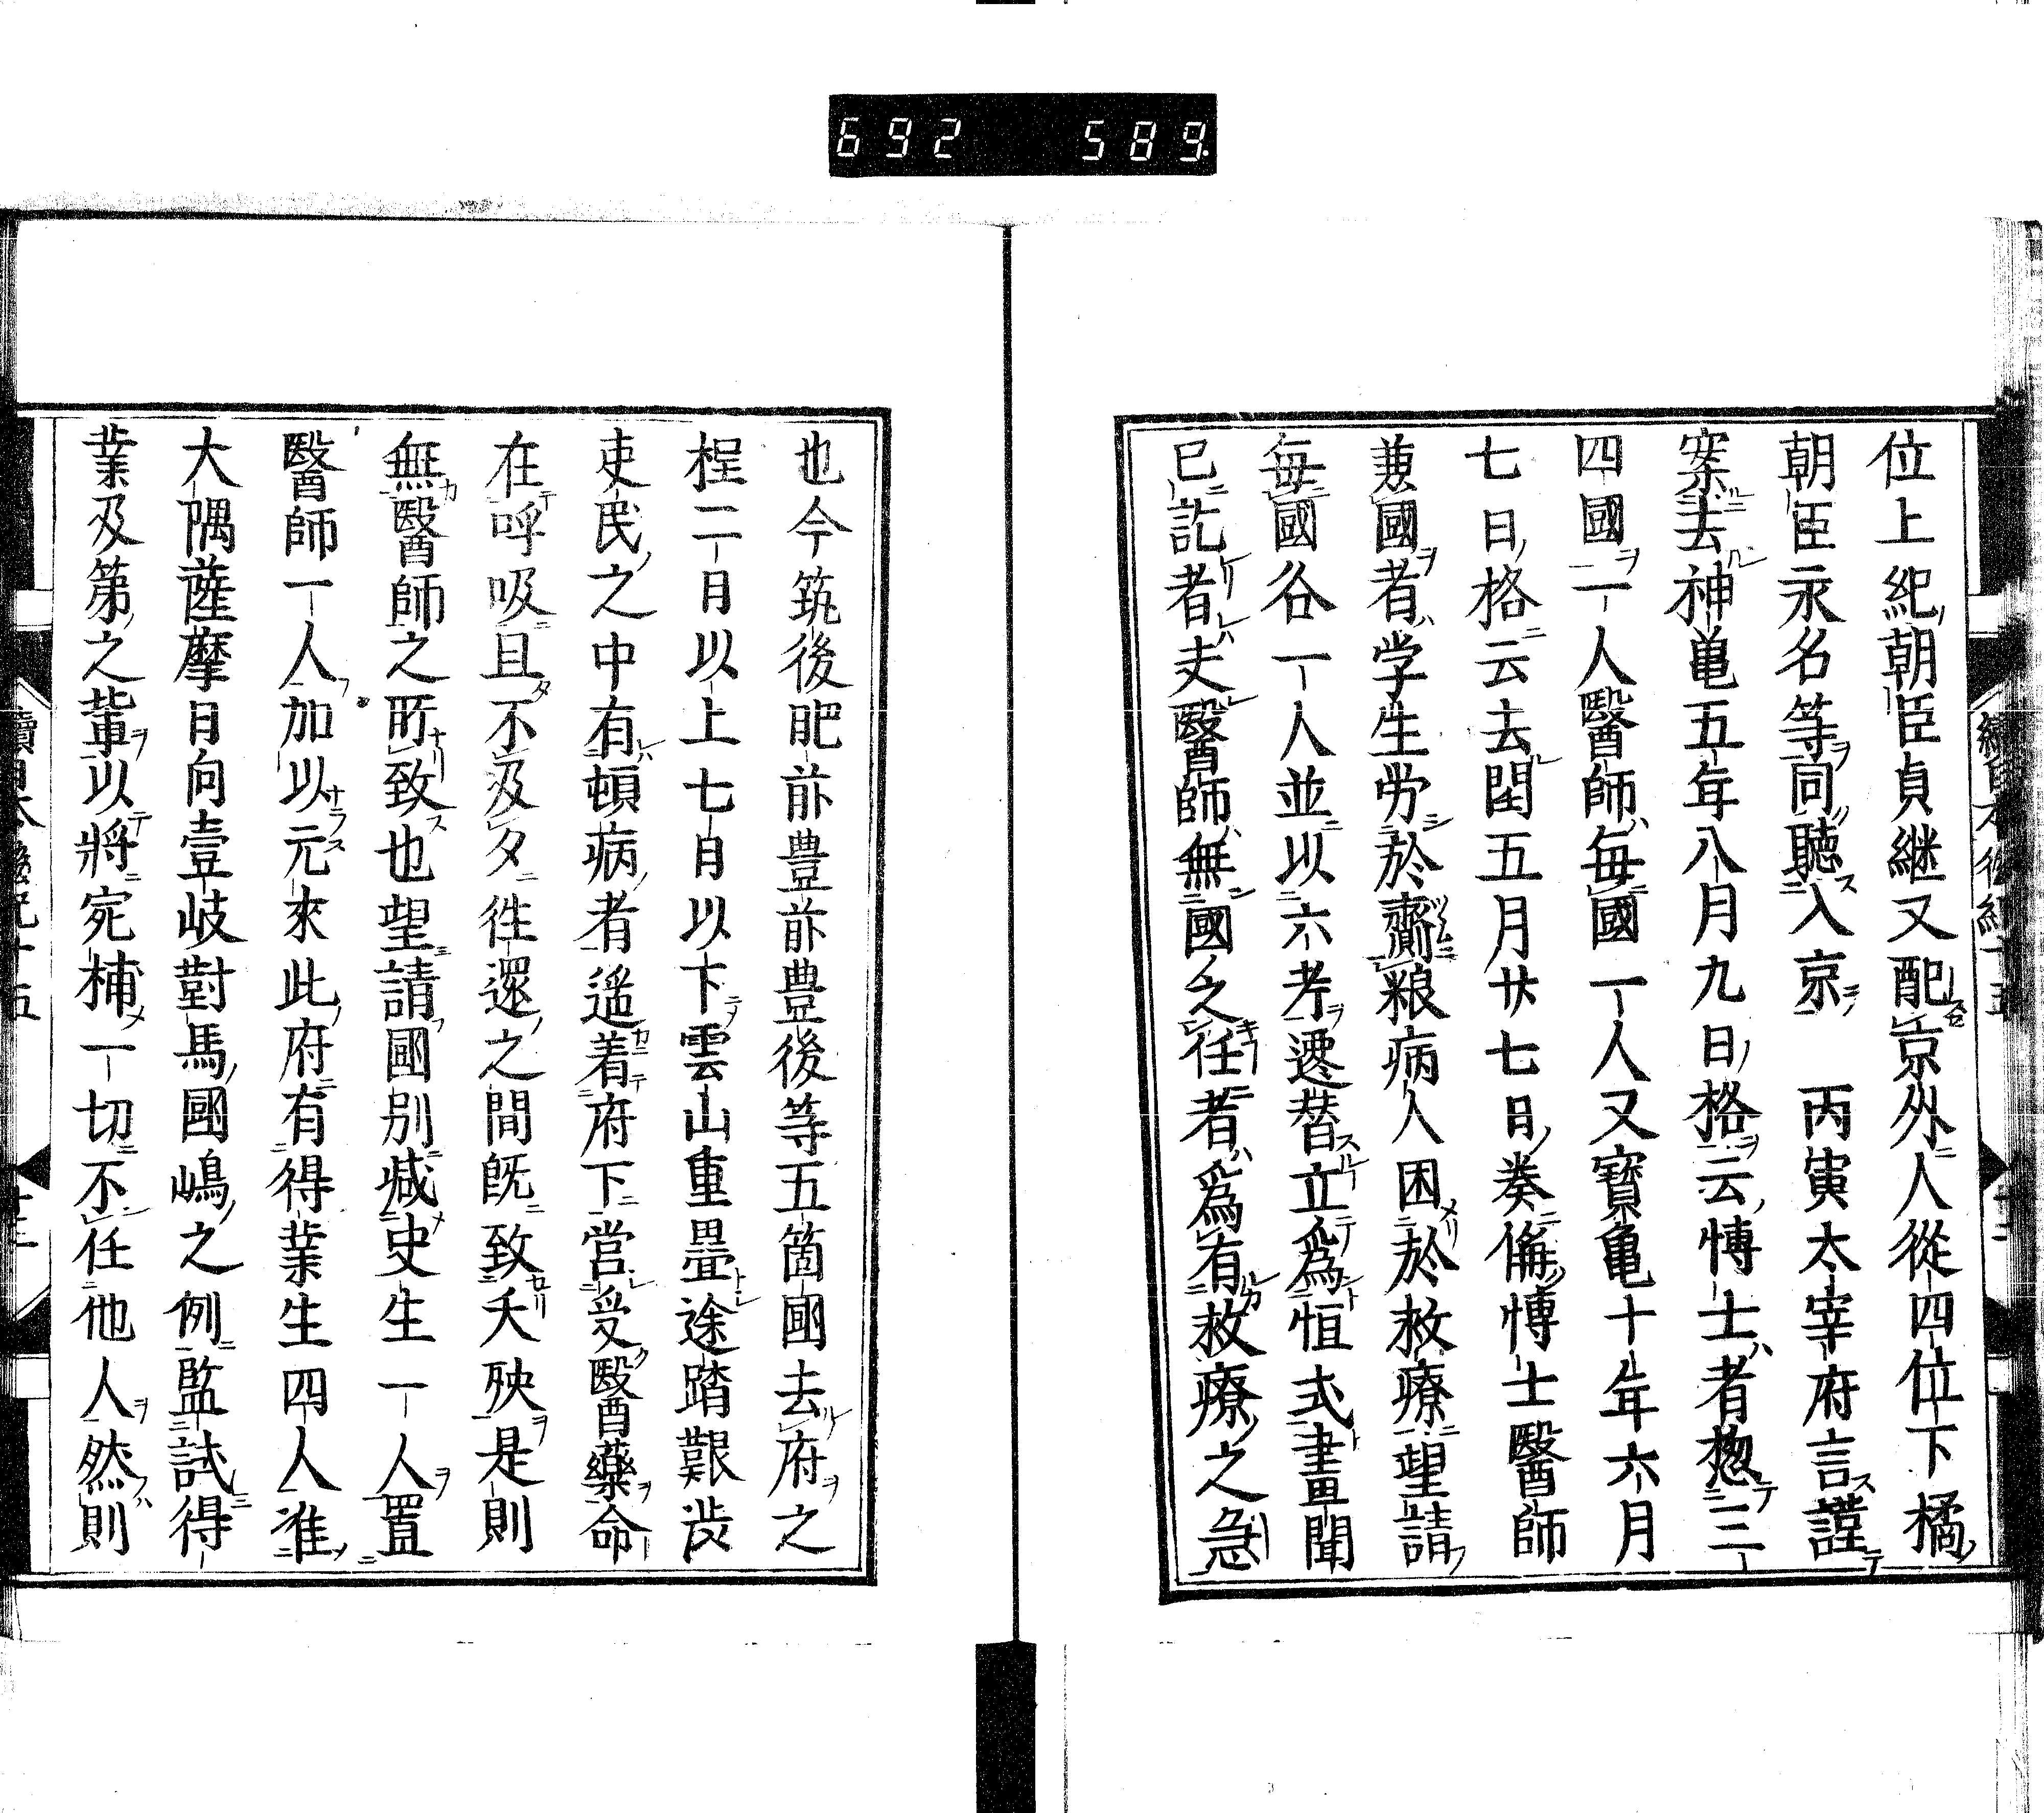 692 589
位上紀朝臣貞継又配京外人從四位下橘
朝臣永名等同聽入京 丙寅太宰府言謹
案去神亀五年八月九日格云博士者惣三
四國一人醫師毎國一人又寶亀十年六月
七日格云去閏五月廿七日奏偁博士醫師
兼國者学生労於齎粮病人困於救療望請
毎國各一人並以六考遷替立為恒式畫聞
已訖者夫醫師無國之任者為有救療之急
也今筑後肥前豊前豊後等五箇國去府之
程二月以上七月以下雲山重畳途踏艱渋
吏民之中有頓病者遥着府下営受醫藥命
在呼吸且不及夕徃還之間既致夭殃是則
無醫師之所致也望請國別减史生一人置
醫師一人加以元來此府有得業生四人准
大隅薩摩日向壹岐對馬國嶋之例監試得
業及第之輩以將宛補一切不任他人然則